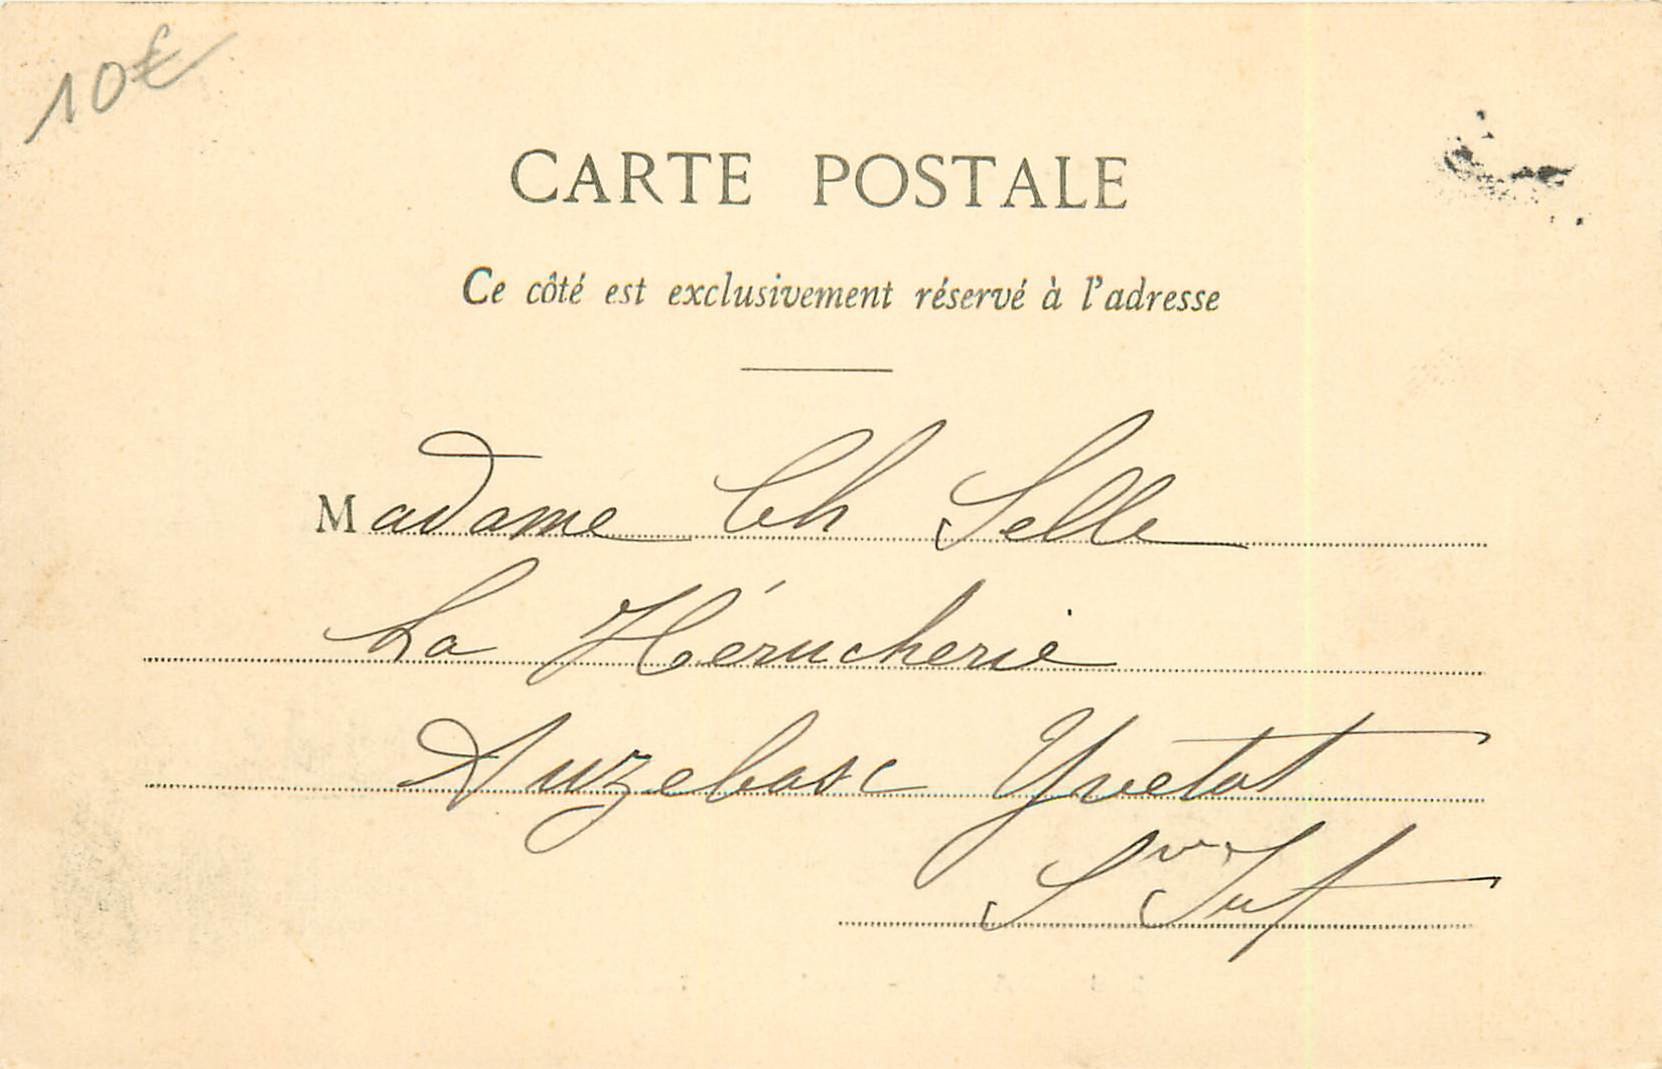 10€
CARTE POSTALE
Ce côté est exclusivement réservé à l'adresse
Madame Ch Selle
La Hérucherie
Auzebosc Yvetot
Sre Infre